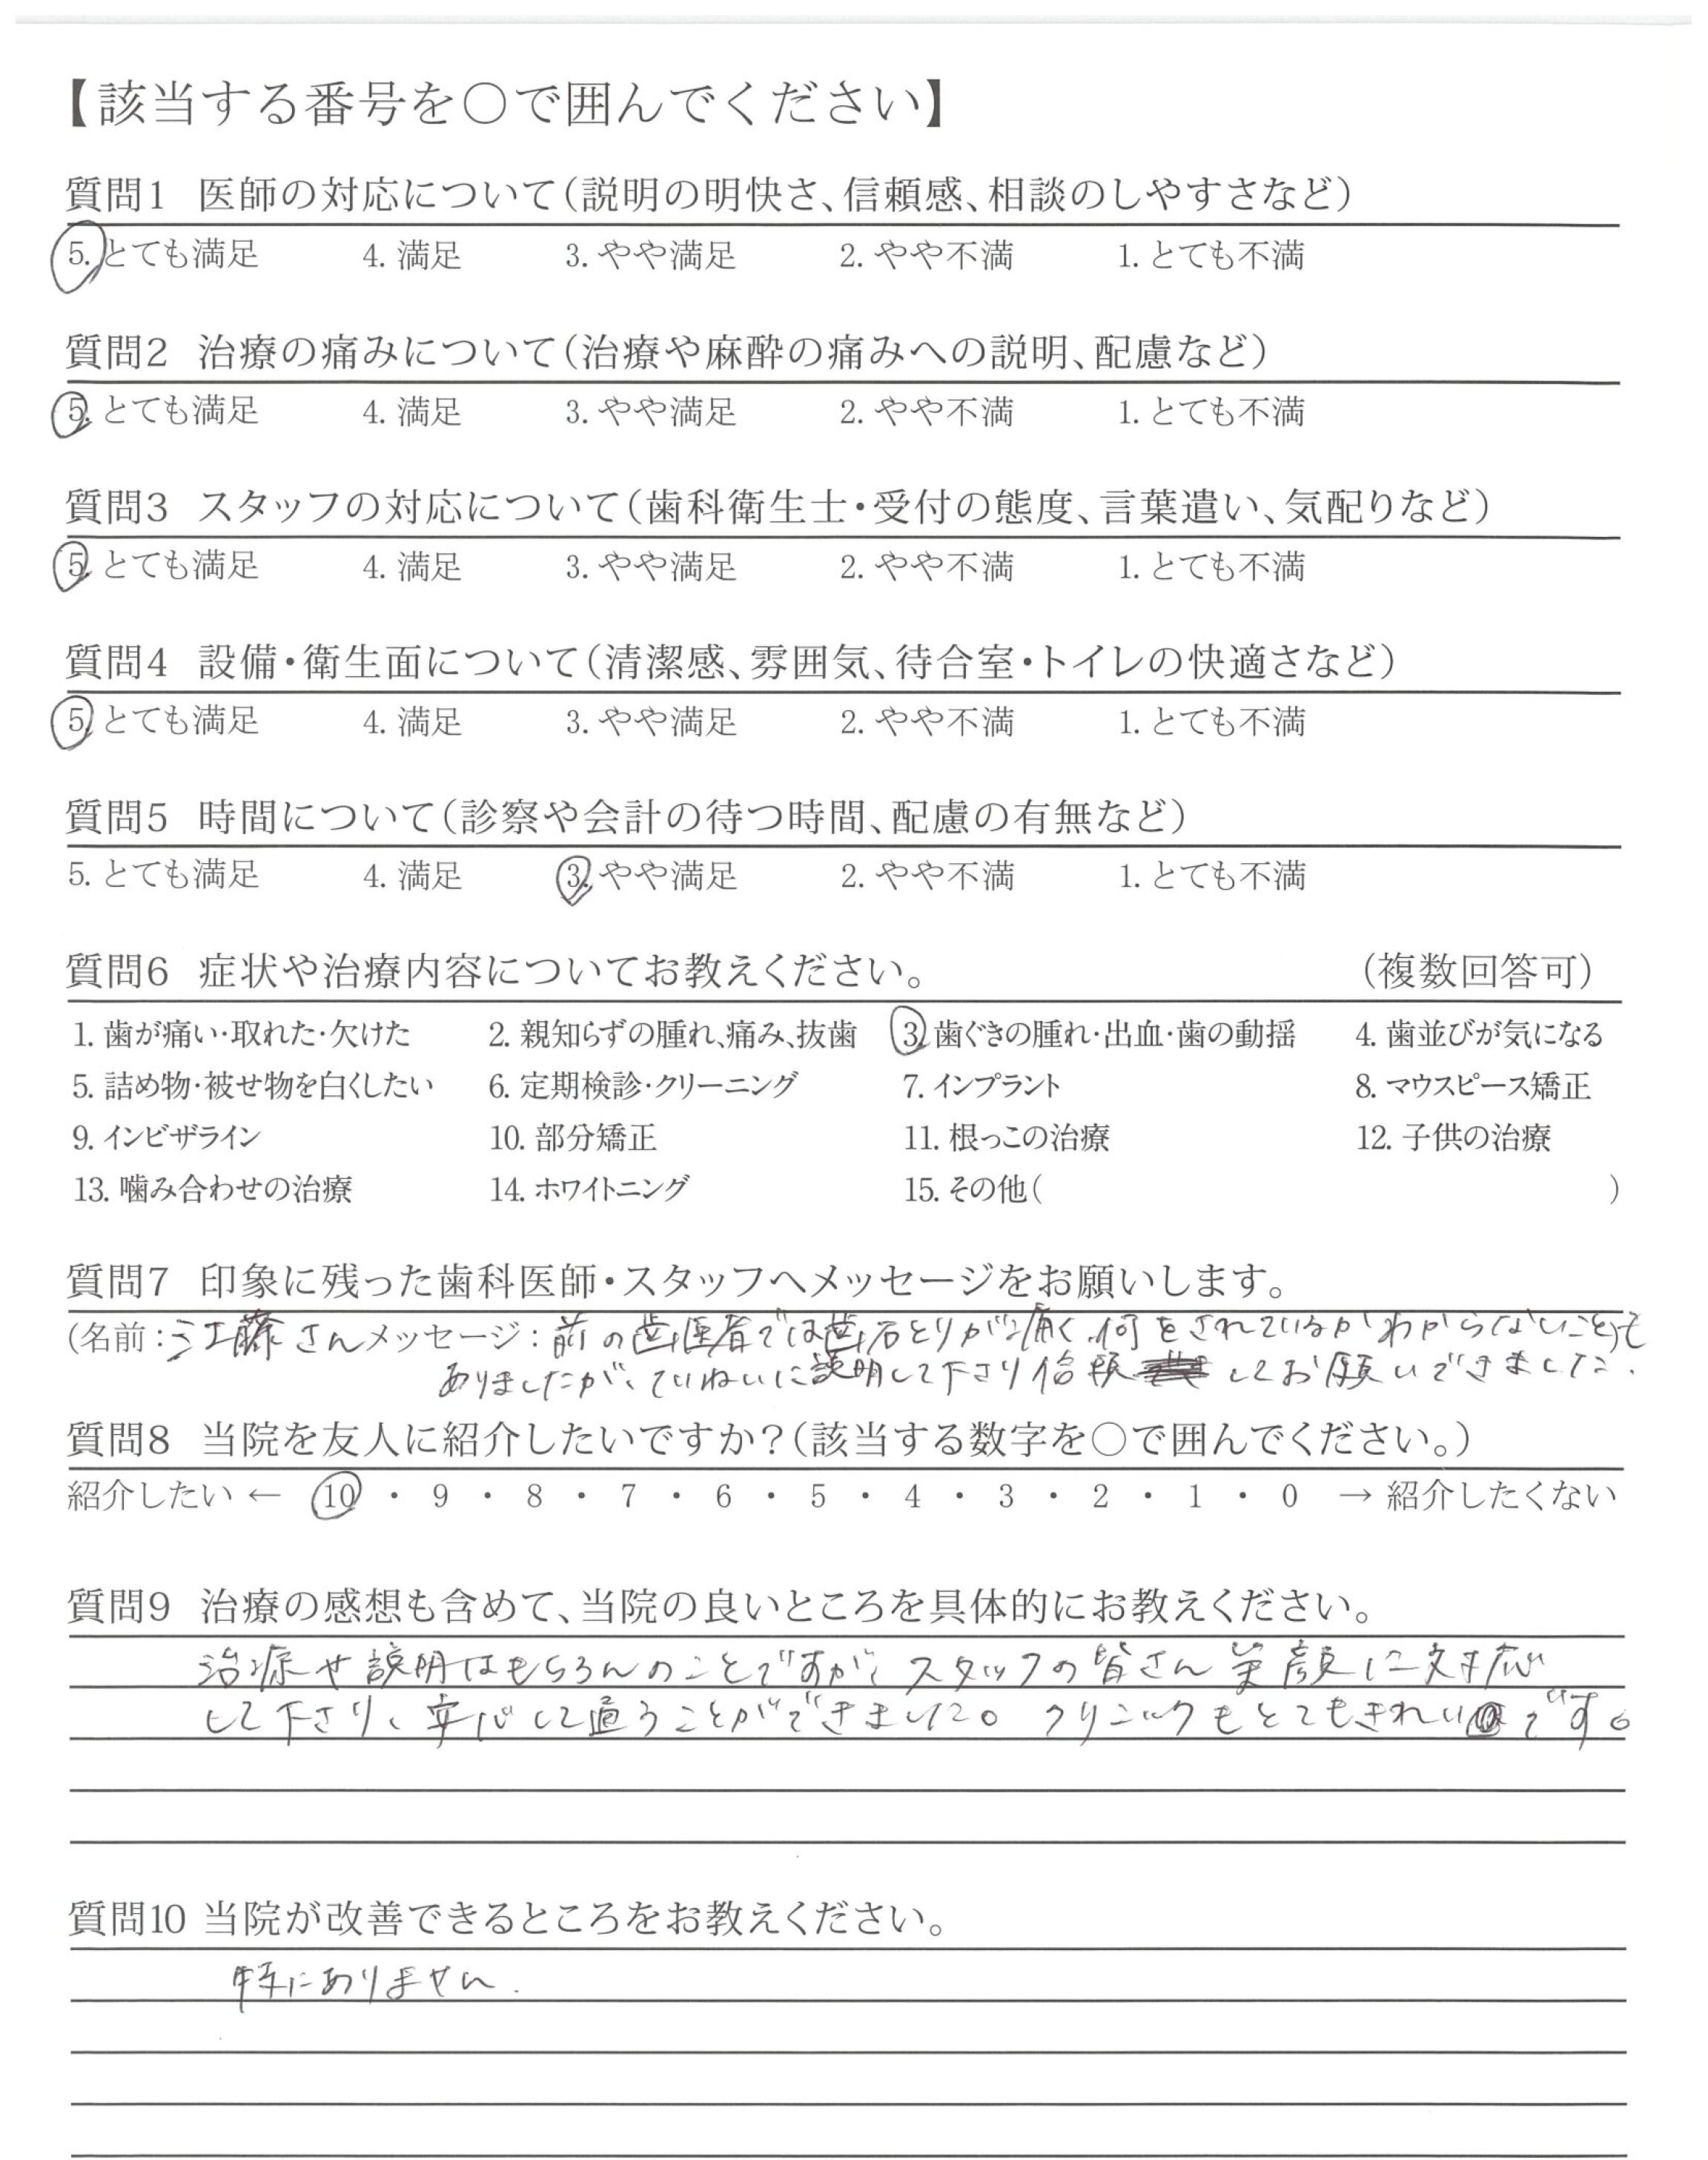 【該当する番号を○で囲んでください】
質問1 医師の対応について(説明の明快さ、信頼感、相談のしやすさなど)
5. とても満足 4. 満足 3. やや満足 2. やや不満 1. とても不満
質問2 治療の痛みについて(治療や麻酔の痛みへの説明、配慮など)
5. とても満足 4. 満足 3. やや満足 2. やや不満 1. とても不満
質問3 スタッフの対応について(歯科衛生士・受付の態度、言葉遣い、気配りなど)
5. とても満足 4. 満足 3. やや満足 2. やや不満 1. とても不満
質問4 設備・衛生面について(清潔感、雰囲気、待合室・トイレの快適さなど)
5. とても満足 4. 満足 3. やや満足 2. やや不満 1. とても不満
質問5 時間について(診察や会計の待つ時間、配慮の有無など)
5. とても満足 4. 満足 3. やや満足 2. やや不満 1. とても不満
質問6 症状や治療内容についてお教えください。 (複数回答可)
1. 歯が痛い・取れた・欠けた 2. 親知らずの腫れ、痛み、抜歯 3. 歯ぐきの腫れ・出血・歯の動揺 4. 歯並びが気になる
5. 詰め物・被せ物を白くしたい 6. 定期検診・クリーニング 7. インプラント 8. マウスピース矯正
9. インビザライン 10. 部分矯正 11. 根っこの治療 12. 子供の治療
13. 噛み合わせの治療 14. ホワイトニング 15. その他( )
質問7 印象に残った歯科医師・スタッフへメッセージをお願いします。
(名前:江藤さん メッセージ:前の歯医者では歯石とりが痛く、何をされているかわからないことも
ありましたが、ていねいに説明して下さり信頼してお願いできました.
質問8 当院を友人に紹介したいですか?(該当する数字を○で囲んでください。)
紹介したい ← 10 ・ 9 ・ 8 ・ 7 ・ 6 ・ 5 ・ 4 ・ 3 ・ 2 ・ 1 ・ 0 → 紹介したくない
質問9 治療の感想も含めて、当院の良いところを具体的にお教えください。
治療や説明はもちろんのことですが、スタッフの皆さん笑顔に対応
して下さり、安心して通うことができました。クリニックもとてもきれいです。
質問10 当院が改善できるところをお教えください。
特にありません.